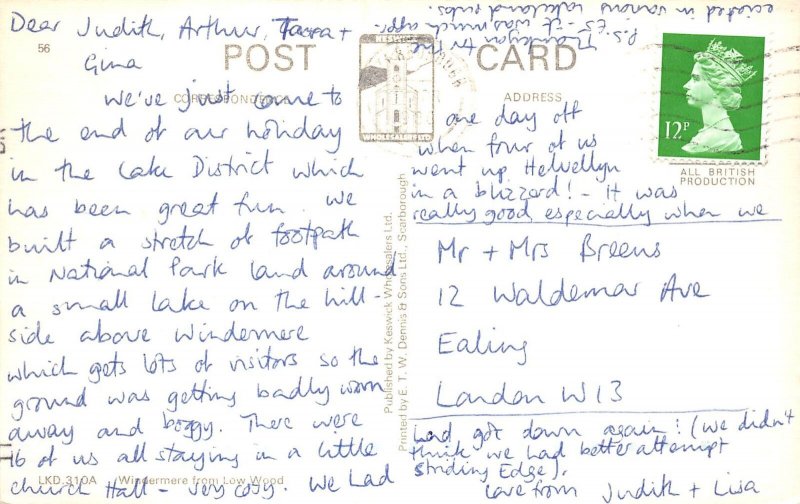 Dear Judith, Arthur, Tara +
Gina
56
POST CARD
CORRESPONDENCE
ADDRESS
We've just come to
the end of our holiday
in the Lake District which
has been great fun. We
built a stretch of footpath
in National Park land around
a small lake on the hill-
side above Windermere
which gets lots of visitors so the
ground was getting badly worn
away and boggy. There were
16 of us all staying in a little
church Hall - very cosy. We had
one day off
when four of us
went up Helvellyn
in a blizzard! - It was
really good especially when we
had got down again! (we didn't
think we had better attempt
Striding Edge).
Love from Judith + Lisa
P.S. Thankyou for the
£5 - it was much appr-
eciated in various Lakeland pubs.
Mr + Mrs Breens
12 Waldemar Ave
Ealing
London W13
12P
ALL BRITISH
PRODUCTION
KESWICK
WHOLESALE LTD
Published by Keswick Wholesalers Ltd.
Printed by E. T. W. Dennis & Sons Ltd., Scarborough
LKD.310A Windermere from Low Wood